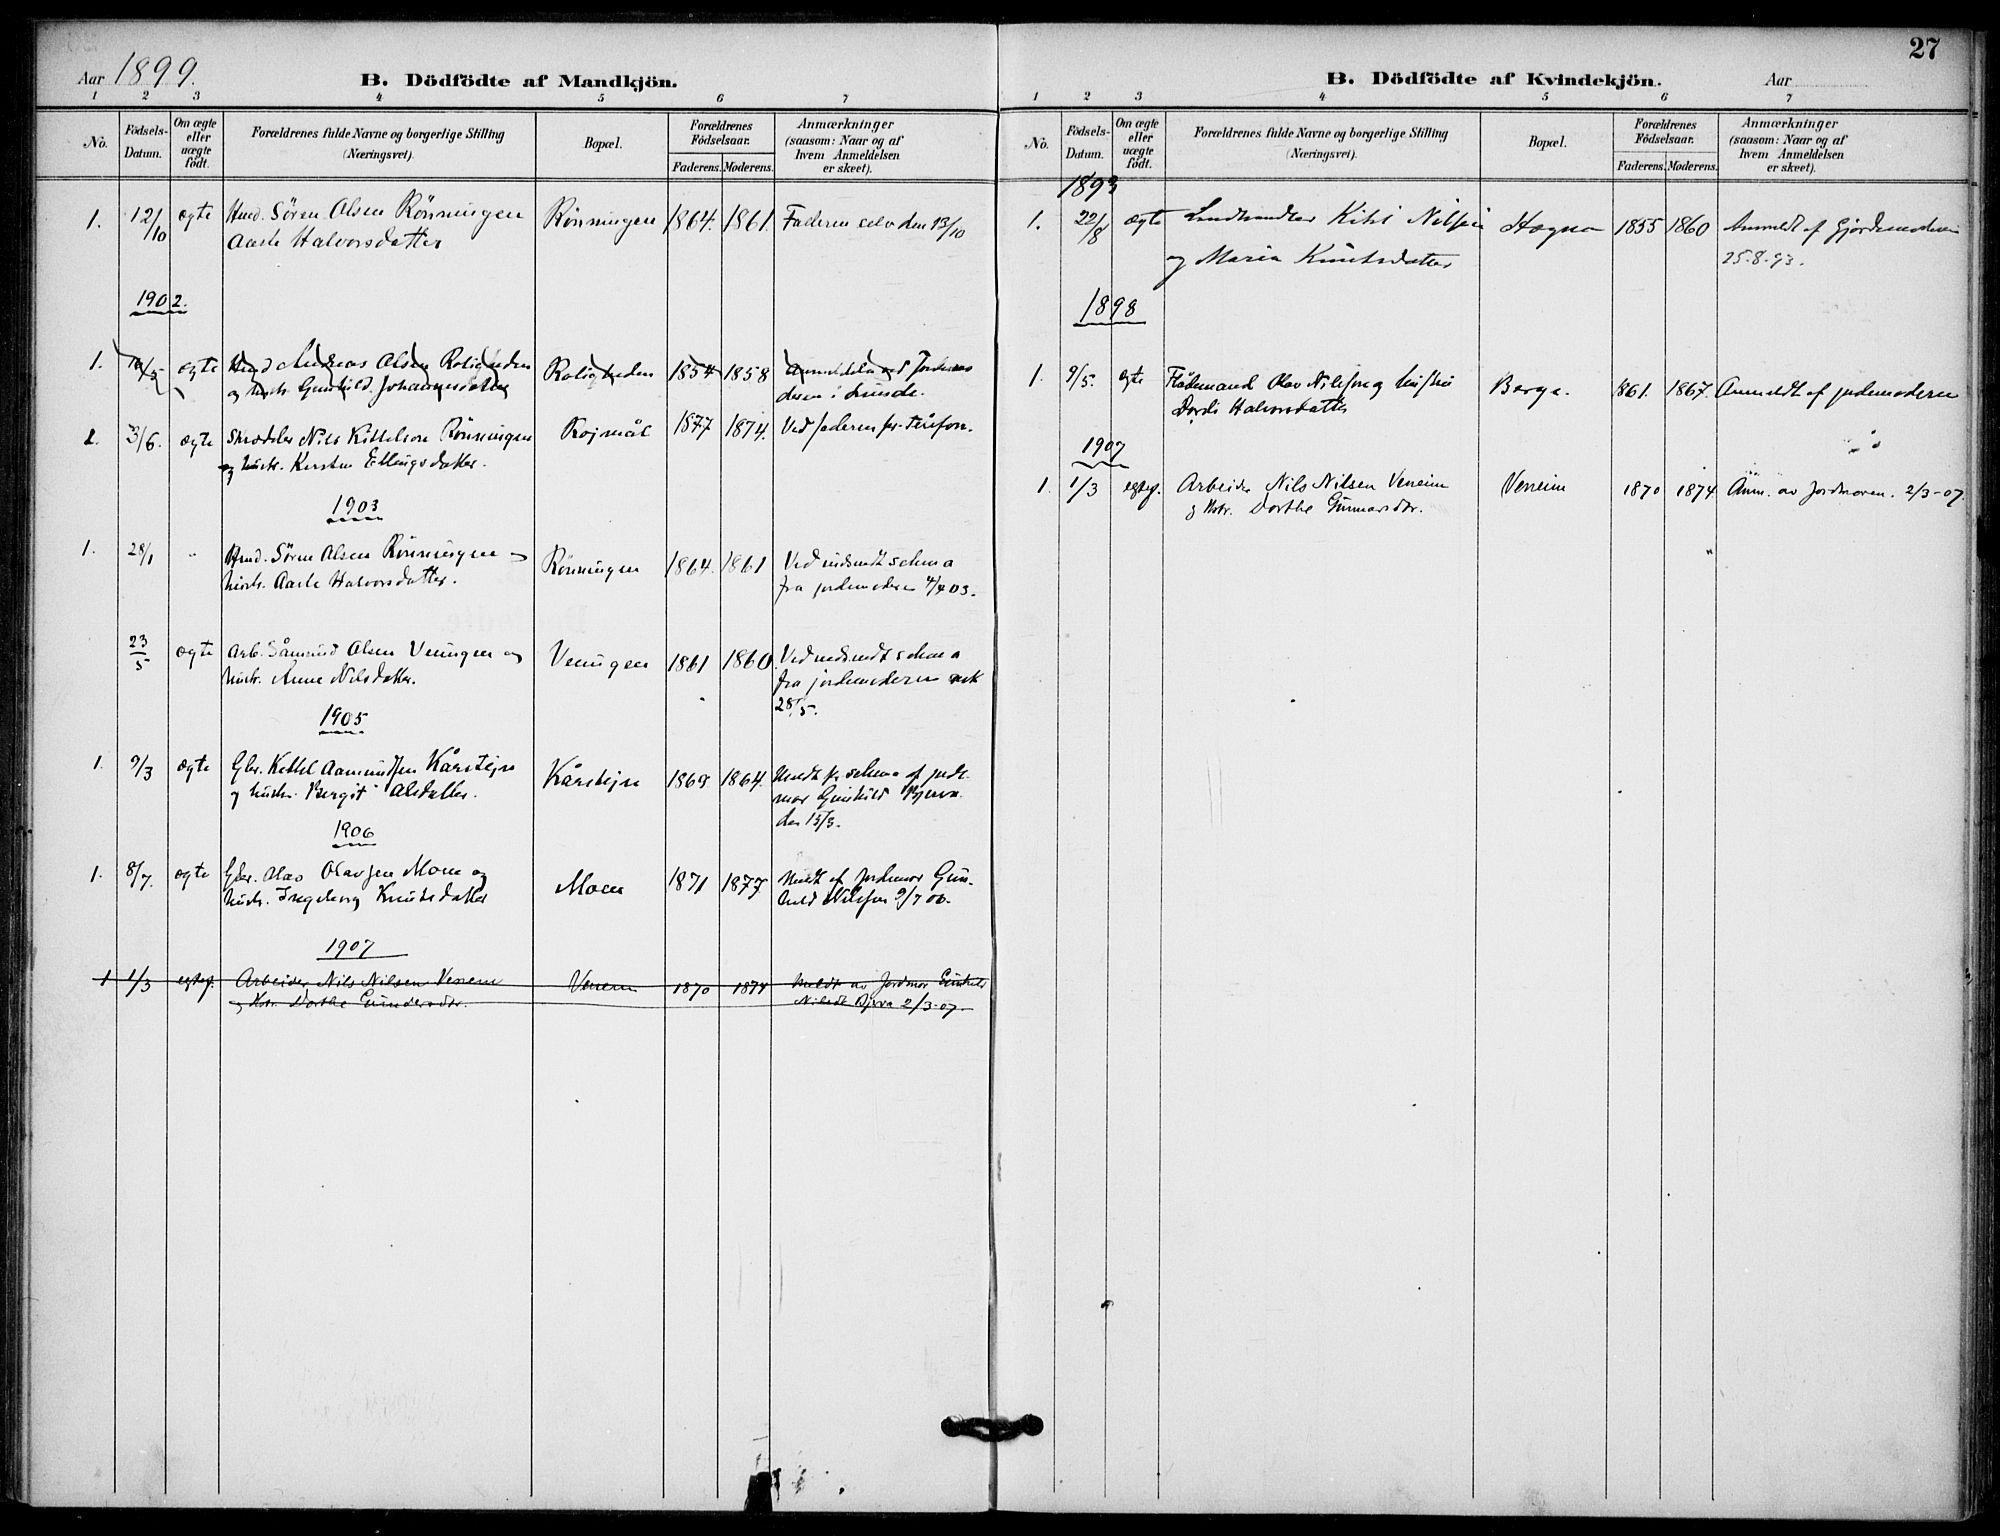 Aar 1899.
B. Dödfödte af Mandkjön.
1 2 3 4 5 6 7
No.
Födsels-Datum.
Om ægte eller uægte födt.
Forældrenes fulde Navne og borgerlige Stilling (Næringsvei).
Bopæl.
Forældrenes Födselsaar.
Faderens. Moderens.
Anmærkninger (saasom: Naar og af hvem Anmeldelsen er skeet).
1. 12/10 ægte Hmd. Sören Olsen Rönningen Rönningen 1864. 1861. Faderen selv den 13/10
Aaste Halvorsdatter
1902.
1. /5 ægte Hmd Andreas Olsen Roligheden Roligheden 1854 1858 anmeldelse ved Jordemo
og hustr. Gunhild Johannesdatter deren i Lunde.
2. /6. ægte Skrædder Nils Kittelsen Rönningen Rojmål 1877 1874. Ved faderen pr. telefon.
og hustr. Kirsten Ellingsdatter.
1903
1. 28/1 " Hmd. Sören Olsen Rönningen Rönningen 1864. 1861 Ved indsendt schema
hustr. Aaste Halvorsdatter. fra jordemoderen 4/4 03.
23/5 ægte Arb. Såmund Olsen Veningen og Veningen 1861 1860. Ved indsendt schema
hustr. Anne Nilsdatter. fra jordemoderen
28/5.
1905
1. 9/3 ægte Gbr. Kittil Aamundsen Kårstejn Kårstejn 1869 1864. Meldt pr. schema af jorde-
og hustr. Bergit Olsdatter. mor Gunhild Bjerva
den 15/3.
1906
1. 8/7. ægte Gbr. Olav Olavsen Moen og Moen 1871 1877 Meldt af jordemor Gun-
hustr. Ingeborg Knutsdatter hild Nilsen 9/7 06.
1907
1 1/3 egtef. Arbeider Nils Nilsen Veneim Veneim 1870 1874 Meldt av Jordmor Gunhild
og Hstr. Dorthe Gundersdtr. Nilsdt Bjerva 2/3-07.
27
B. Dödfödte af Kvindekjön.
Aar
1 2 3 4 5 6 7
No.
Födsels-Datum.
Om ægte eller uægte födt.
Forældrenes fulde Navne og borgerlige Stilling (Næringsvei).
Bopæl.
Forældrenes Födselsaar.
Faderens. Moderens.
Anmærkninger (saasom: Naar og af hvem Anmeldelsen er skeet).
1893
1. 22/8 ægte Landhandler Nilsen Hogna 1855 1860 Anmeldt af Gjordemoderen
og Maria Knutsdatter 25-8-93.
1898
1. 9/5. egte Flödemand Olav Nilsen og hustru Borge. 1861. 1867. Anmeldt af jordemoderen
Dordi Halvorsdatter
1907
1. 1/3 egtef. Arbeider Nils Nilsen Veneim Veneim 1870 1874 Anm. av Jordmoren. 2/3-07.
og Hstr. Dorthe Gunnarsdtr.